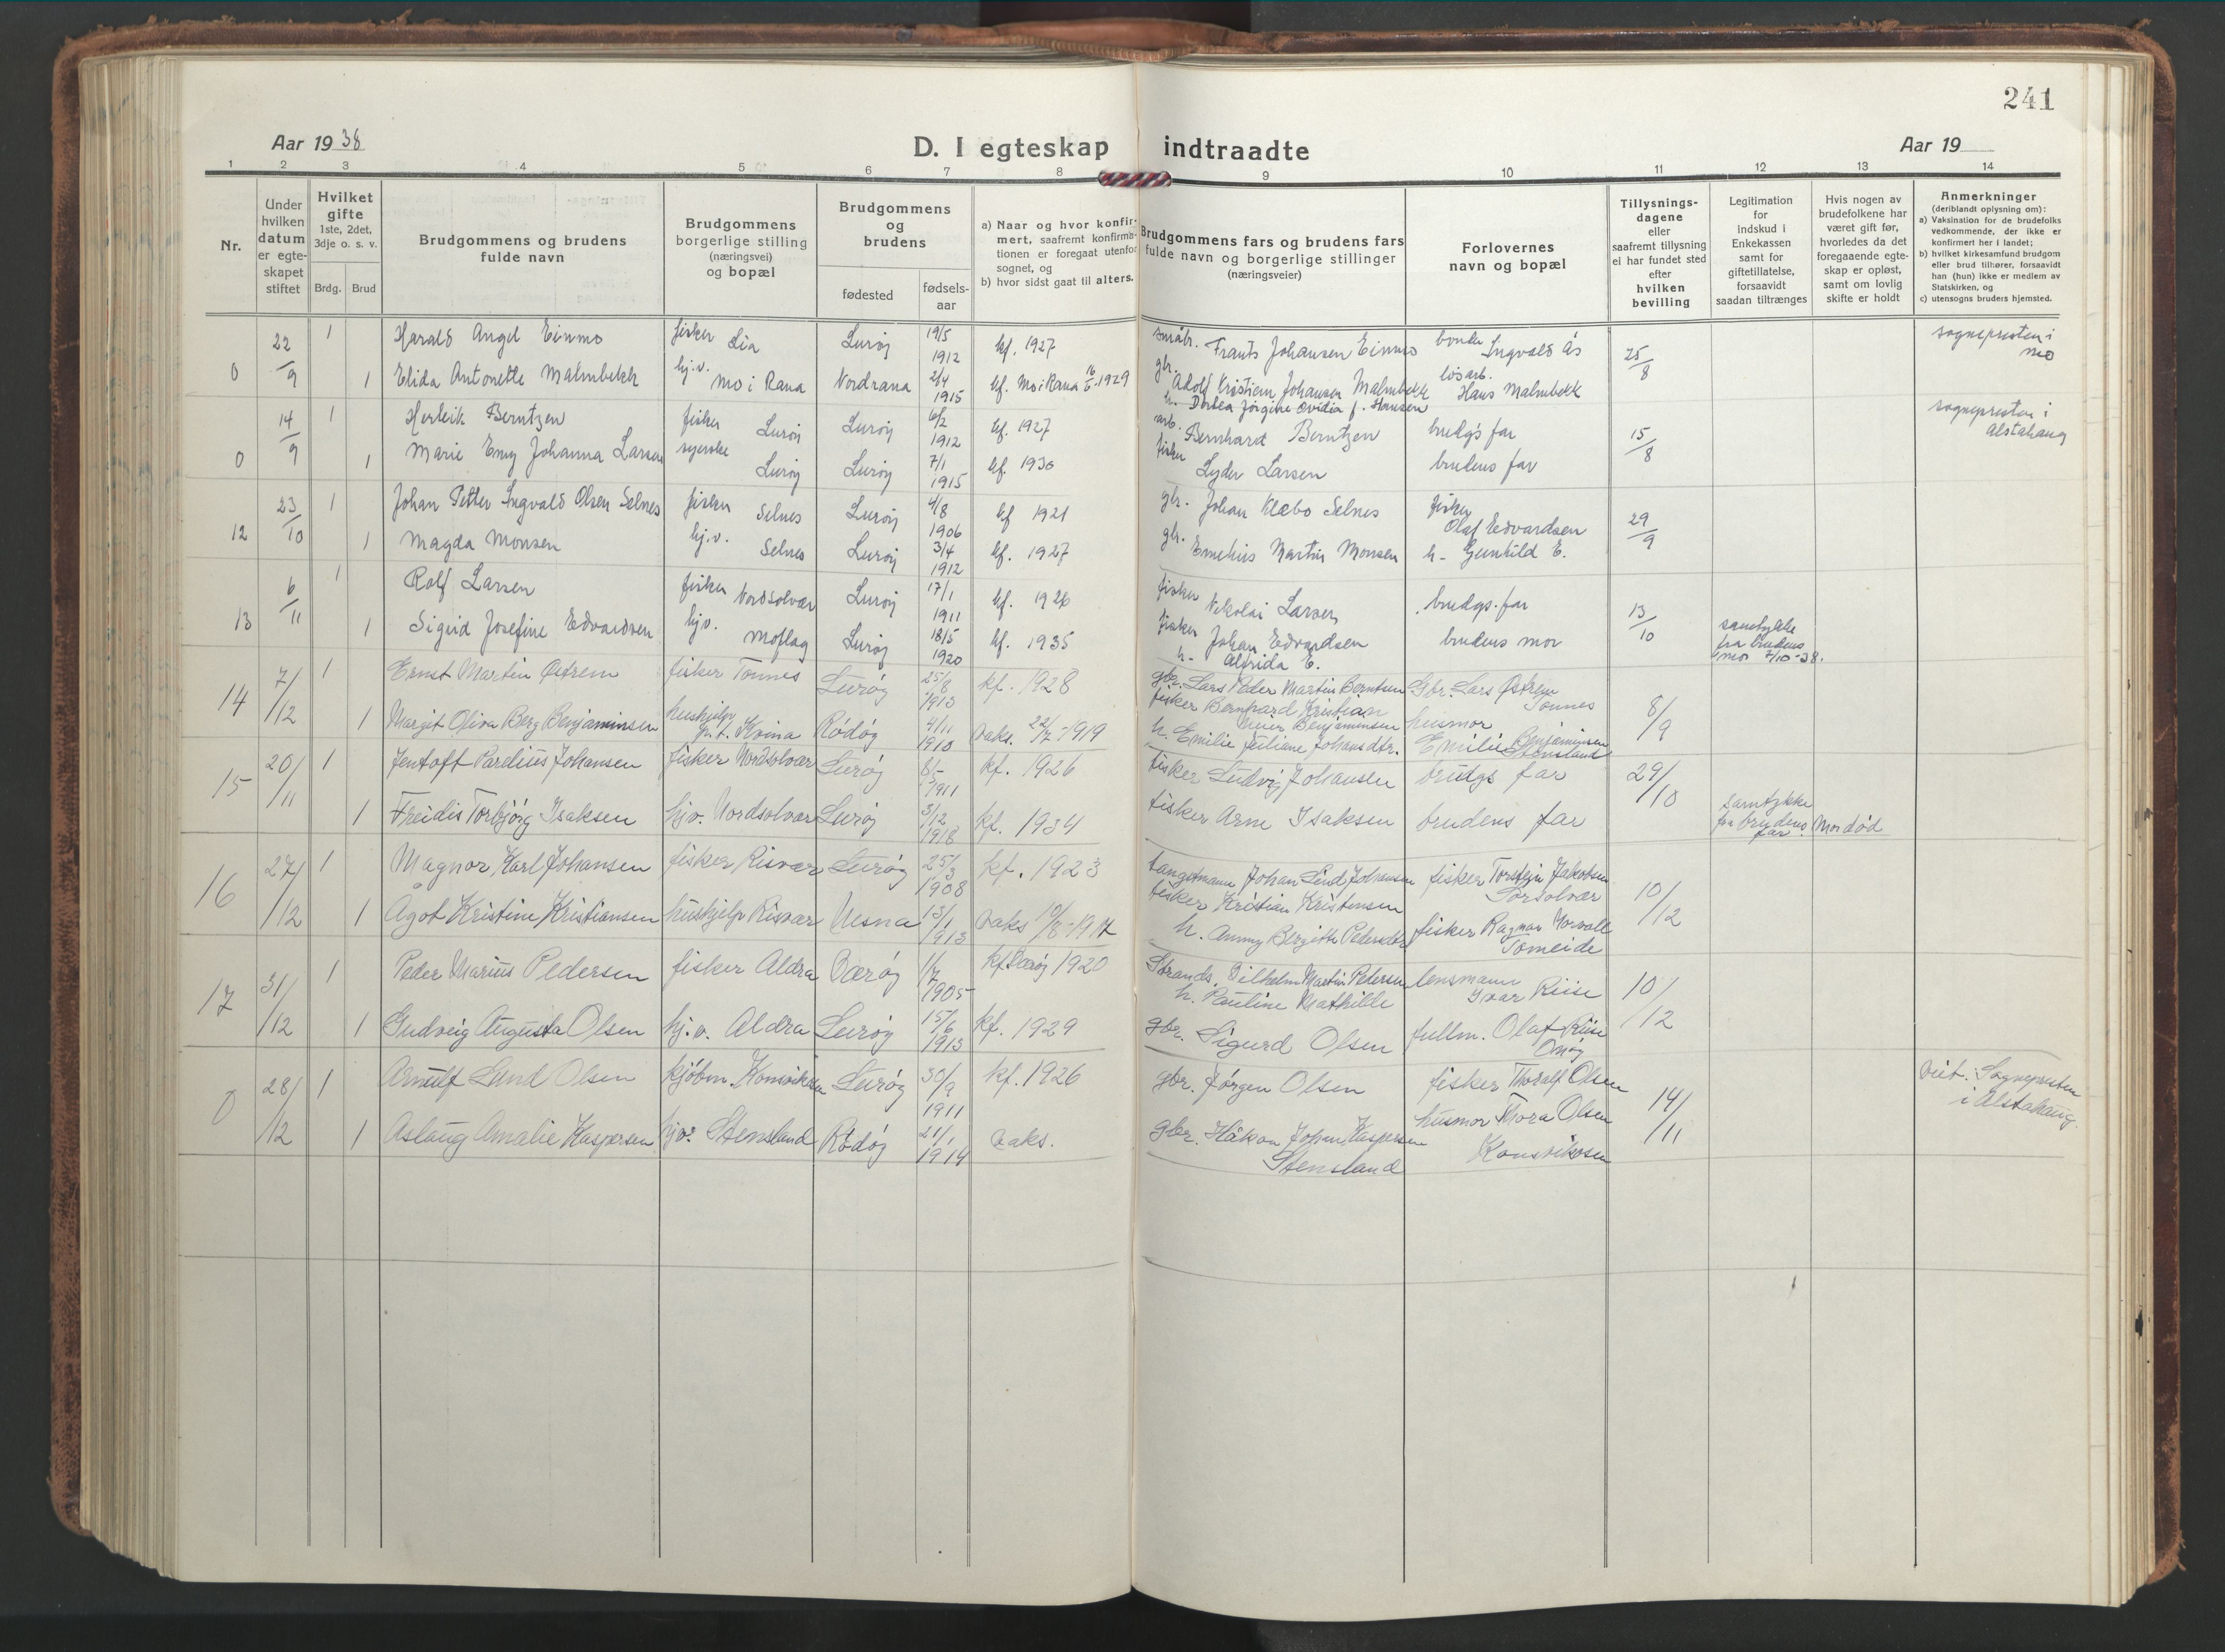 241
Aar 1938
D. I egteskap indtraadte
Aar 19
1 2 3 4 5 6 7 8 9 10 11 12 13 14
Nr.
Under hvilken datum er egteskapet stiftet
Hvilket gifte
1ste, 2det, 3dje o. s. v.
Brdg. Brud
Brudgommens og brudens fulde navn
Brudgommens borgerlige stilling (næringsvei) og bopæl
Brudgommens og brudens
fødested
fødsels-aar
a) Naar og hvor konfirmert, saafremt konfirmationen er foregaat utenfor sognet, og
b) hvor sidst gaat til alters.
Brudgommens fars og brudens fars fulde navn og borgerlige stillinger (næringsveier)
Forlovernes navn og bopæl
Tillysnings-dagene eller saafremt tillysning ei har fundet sted efter hvilken bevilling
Legitimation for indskud i Enkekassen samt for giftetillatelse, forsaavidt saadan tiltrænges
Hvis nogen av brudefolkene har været gift før, hvorledes da det foregaaende egteskap er opløst, samt om lovlig skifte er holdt
Anmerkninger
(deriblandt oplysning om):
a) Vaksination for de brudefolks vedkommende, der ikke er konfirmert her i landet;
b) hvilket kirkesamfund brudgom eller brud tilhører, forsaavidt han (hun) ikke er medlem av Statskirken, og
c) utensogns bruders hjemsted.
0 22/9 1 Harald Angel Einmo fisker Lia Lurøy 19/5 1912 kf. 1927 småbr. Frants Johansen Einmo bonde Ingvald Ås 25/8 sognepresten i Mo
1 Elida Antonette Malmbekk hj.v. Mo i Rana Nordrana 2/4 1915 kf. Mo i Rana 1929 gbr. Adolf Kristian Johansen Malmbekk løsarb. Hans Malmbekk
h. Dortea Jørgine Ovidia f. Hansen
0 14/9 1 Herleik Berntzen fisker Lurøy Lurøy 6/2 1912 kf. 1927 arb. Bernhard Berntzen brudg's far 15/8 sognepresten i Alstahaug
1 Marie Emy Johanna Larsen syerske Lurøy Lurøy 7/1 1915 kf. 1930 fisker Lyder Larsen brudens far
12 23/10 1 Johan Petter Ingvald Olsen Selnes fisker Selnes Lurøy 4/8 1906 kf 1921 gbr. Johan Klæbo Selnes fisker Olaf Edvardsen 29/9
1 Magda Monsen hj.v. Selnes Lurøy 3/4 1912 kf. 1927 gbr. Emelius Martin Monsen h- Gunhild E.
13 6/11 1 Rolf Larsen fisker Nordsolvær Lurøy 17/1 1911 kf. 1926 fisker Nikolai Larsen brudgs. far 13/10
1 Sigrid Josefine Edvardsen hjv. Moflag Lurøy 18/5 1920 kf. 1935 fisker Johan Edvardsen brudens mor samtykke fra brudens mor 7/10-38.
h- Alfrida E.
14 7/12 1 Ernst Martin Østrem fisker Tonnes Lurøy 25/8 1913 kf. 1928 gbr. Lars Peder Martin Berntsen Gbr. Lars Østrem Tonnes 8/9
1 Margit Oliva Berg Benjaminsen hushjelp p.t. Kvina Rødøy 4/11 1910 vaks. 22/7-1919 fisker Bernhard Kristian Meier Benjaminsen husmor
h. Emilie Juliane Johansdtr. Emilie Benjaminsen Stensland
15 20/11 1 Jentoft Parelius Johansen fisker Nordsolvær Lurøy 8/ 1911 kf. 1926 fisker Ludvig Johansen brudgs far 29/10
1 Freidis Torbjørg Isaksen hjv. Nordsolvær Lurøy 3/12 1918 kf. 1934 fisker Arne Isaksen brudens far samtykke fra brudens far Mor død
16 27/12 1 Magnor Karl Johansen fisker Risvær Lurøy 25/3 1908 kf. 1923 Johan Lind Johansen fisker Torstein Jakobsen Sørsolvær 10/12
1 Ågot Kristine Kristiansen hushjelp Risvær Nesna 13/1 1913 vaks 10/8-1917 fisker Kristian Kristensen
h. Anny Bergitte Pedersdtr fisker Ragnar Tomeide
17 31/12 1 Peder Marius Pedersen fisker Aldra Værøy 1/7 1905 kf Værøy 1920 Strands. Vilhelm Martin Pedersen lensmann Ivar Riise 10/12
h. Pauline Mathilde
1 Gudveig Augusta Olsen hj.v. Aldra Lurøy 15/6 1913 kf. 1929 gbr. Sigurd Olsen fullm. Olaf Riise Onøy
0 28/12 1 Arnulf Lund Olsen kjøbm. Konsvikosen Lurøy 30/9 1911 kf. 1926 gbr. Jørgen Olsen fisker Thoralf Olsen 14/11 Viet: Sognepresten i Alstahaug.
1 Aslaug Amalie Kaspersen hjv. Stensland Rødøy 21/1 1914 vaks. gbr. Håkon Johan Kaspersen husmor Thora Olsen
Stensland Konsvikosen